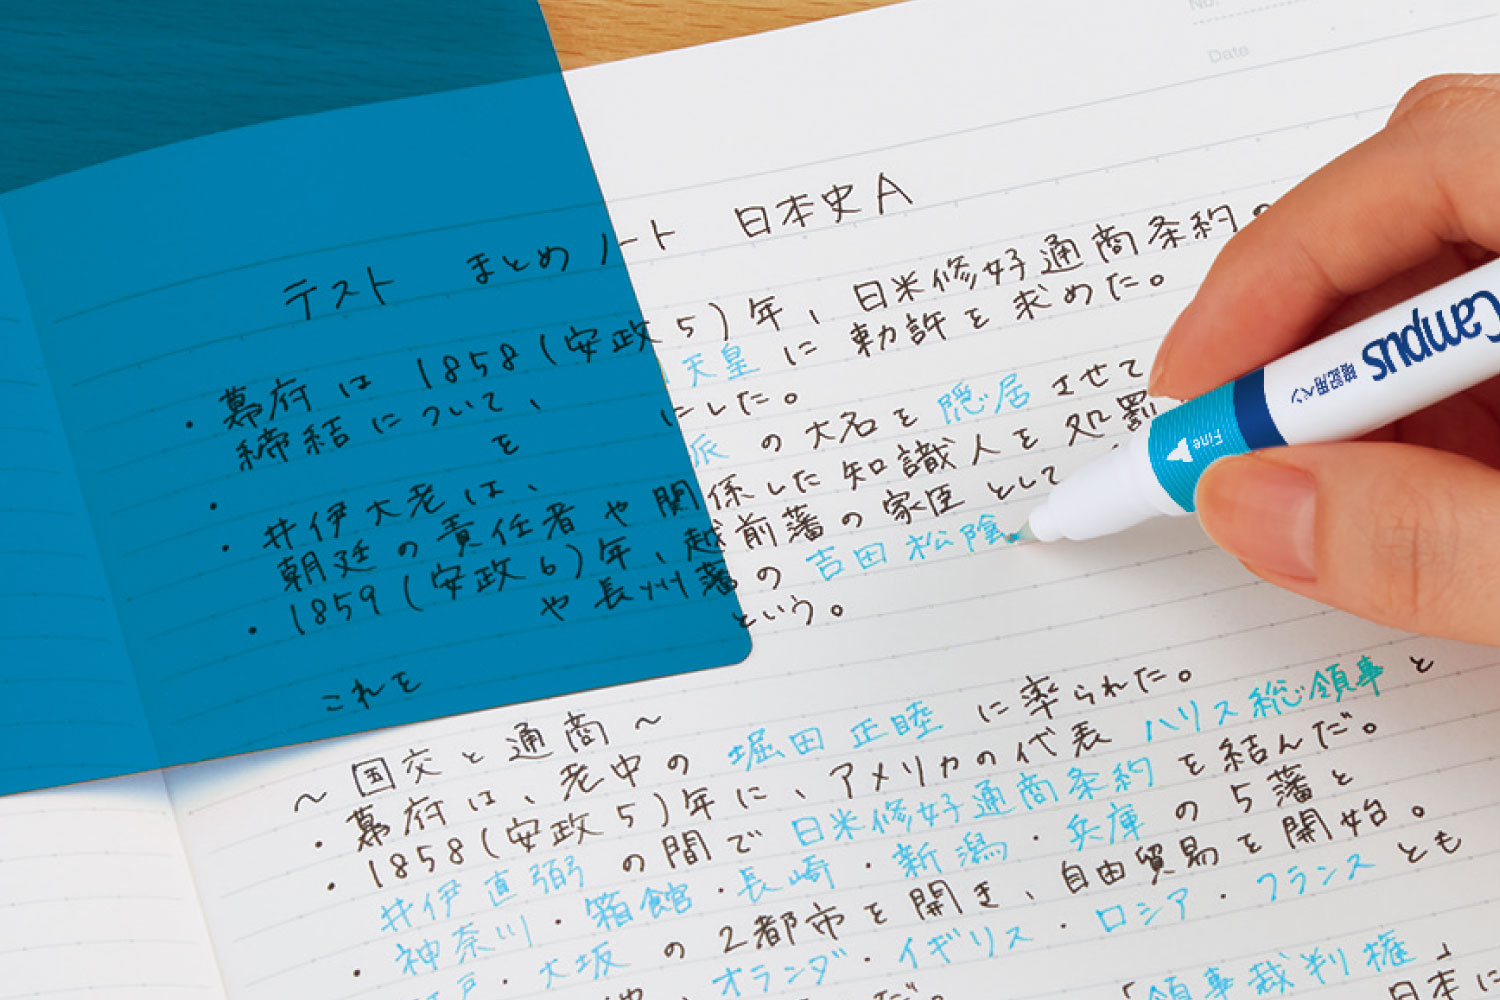 No.
Date
テスト まとめノート 日本史A
・幕府は1858(安政5)年、日米修好通商条約の
締結について、天皇に勅許を求めた。
・ を にした。
・井伊大老は、 派の大名を隠居させて
朝廷の責任者や関係した知識人を処罰
・1859(安政6)年、越前藩の家臣として
や長州藩の吉田松陰
これを という。
～開交と通商～
・幕府は、老中の堀田正睦に率られた。
・1858(安政5)年に、アメリカの代表ハリス総領事と
井伊直弼の間で日米修好通商条約を結んだ。
・神奈川・箱館・長崎・新潟・兵庫の5藩と
江戸・大坂の2都市を開き、自由貿易を開始。
オランダ・イギリス・ロシア・フランスとも
「領事裁判権」
日本に
Campus
暗記用ペン
Fine